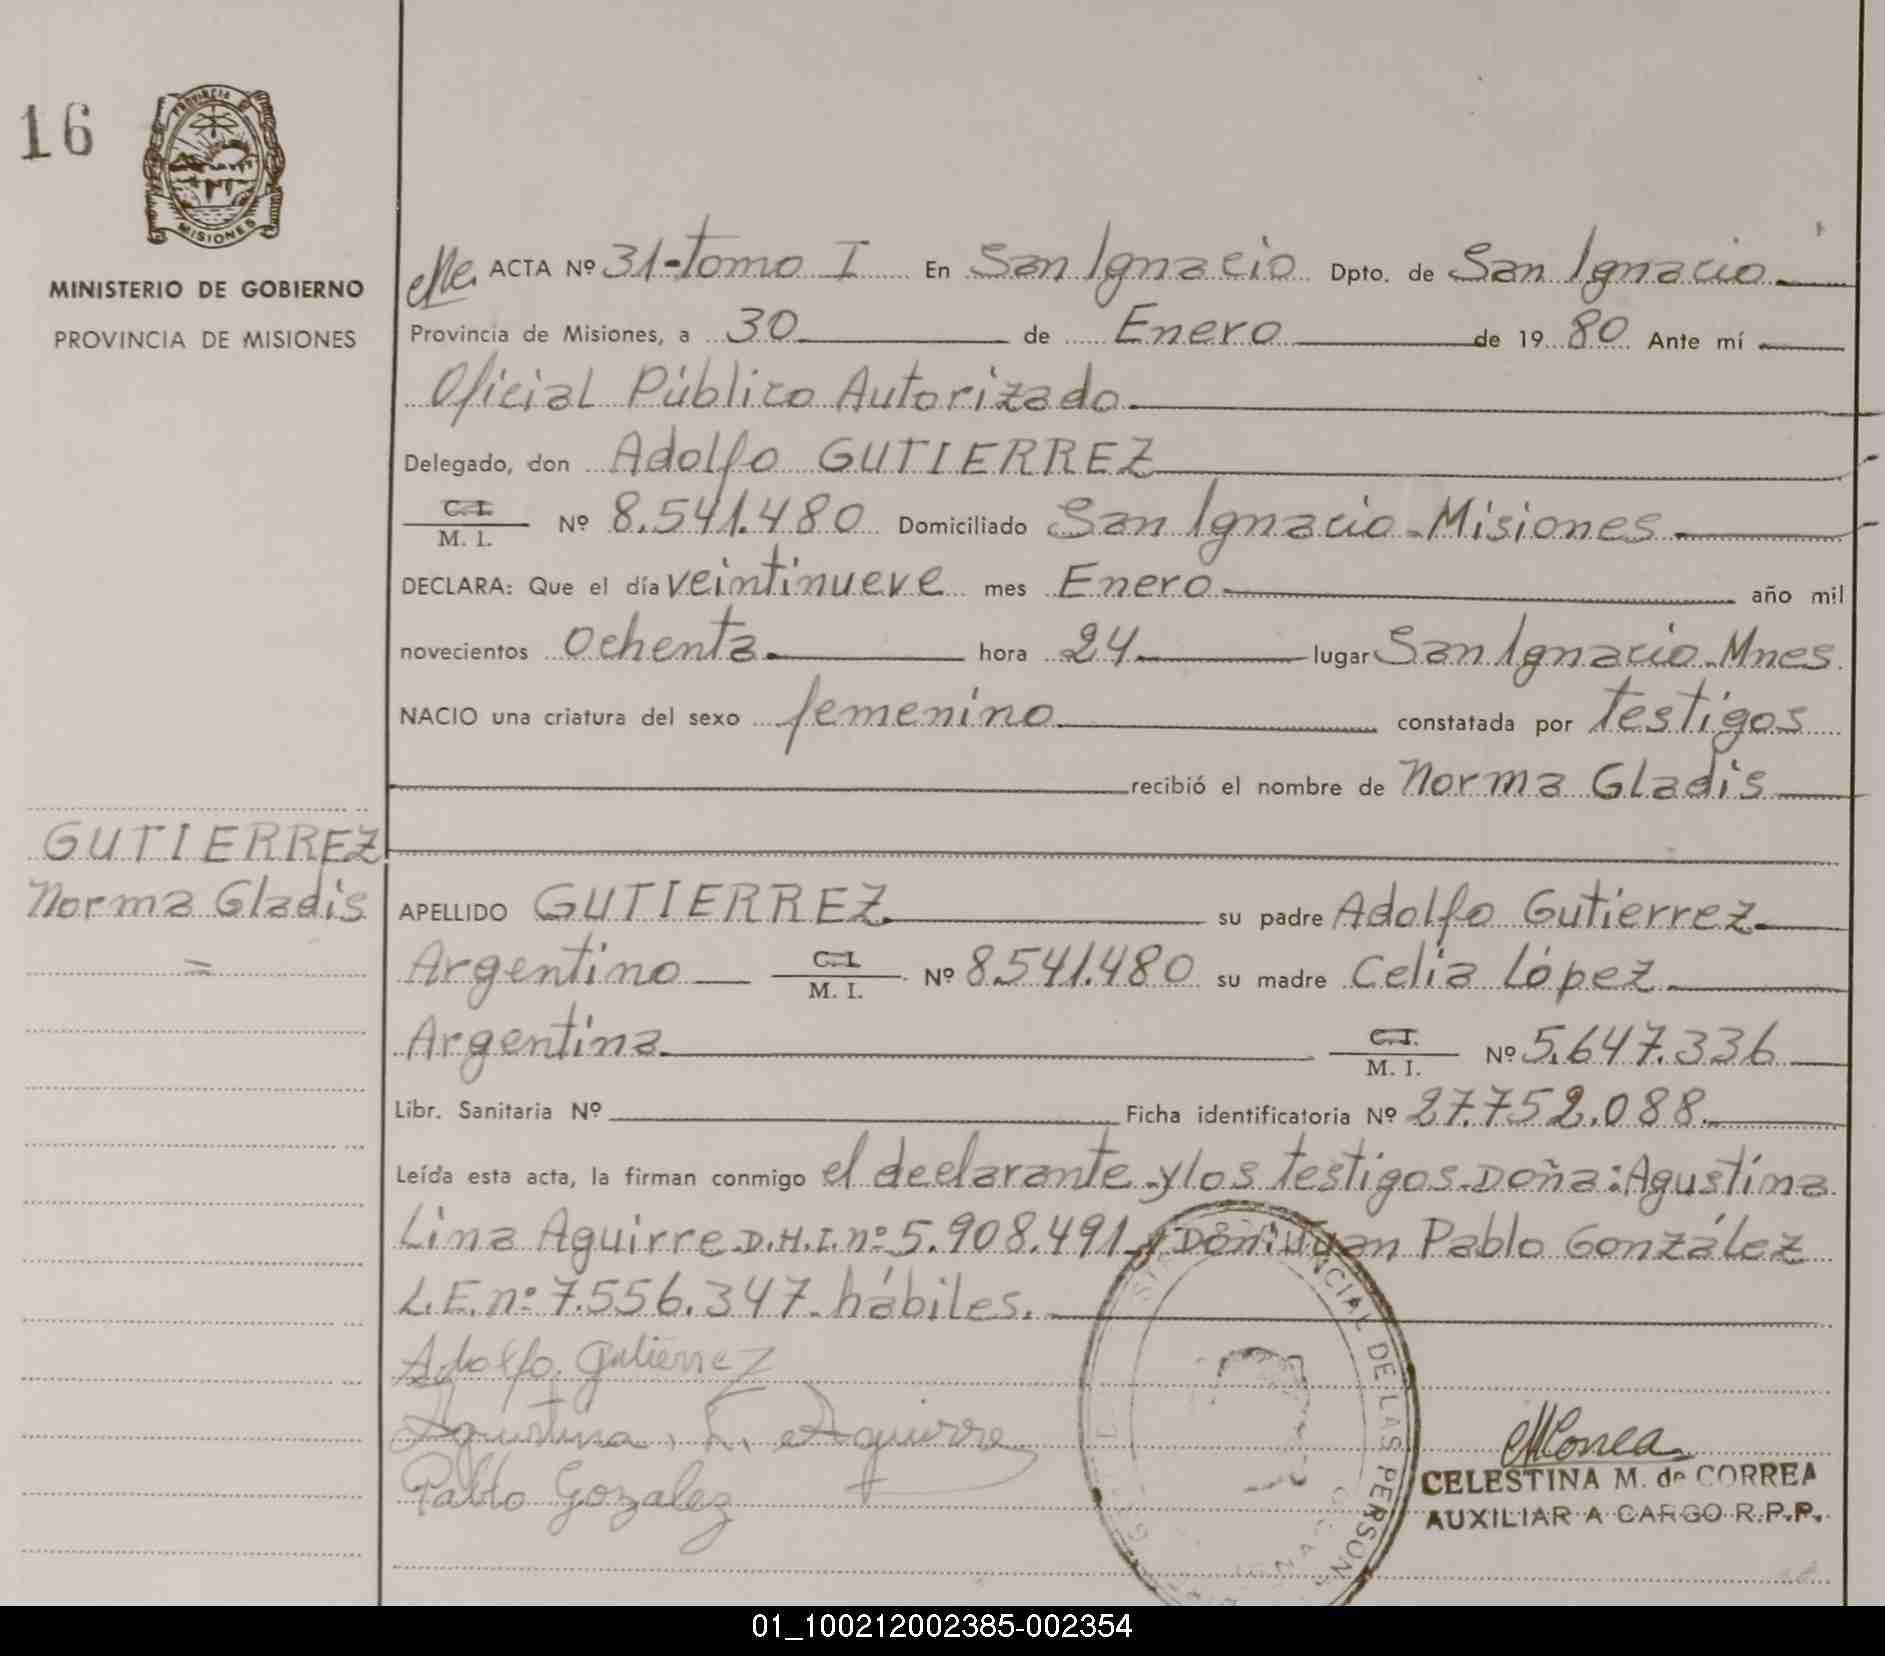 16
PROVINCIA
MISIONES
MINISTERIO DE GOBIERNO
PROVINCIA DE MISIONES
ACTA Nº 31-tomo I En San Ignacio Dpto. de San Ignacio
Provincia de Misiones, a 30 de Enero de 19 80 Ante mí
Oficial Público Autorizado
Delegado, don Adolfo GUTIERREZ
C. I.
M. I. Nº 8.541.480 Domiciliado San Ignacio-Misiones
DECLARA: Que el día veintinueve mes Enero año mil
novecientos ochenta hora 24 lugar San Ignacio-Mnes.
NACIO una criatura del sexo femenino constatada por testigos
recibió el nombre de Norma Gladis
GUTIERREZ
Norma Gladis
=
APELLIDO GUTIERREZ su padre Adolfo Gutierrez
Argentino C. I. M. I. Nº 8.541.480 su madre Celia López
Argentina C. I. M. I. Nº 5.647.336
Libr. Sanitaria Nº Ficha identificatoria Nº 27.752.088
Leída esta acta, la firman conmigo el declarante y los testigos-Doña: Agustina
Lina Aguirre-D.H.I. nº 5.908.491 y Don: Juan Pablo González
L.E. nº 7.556.347-hábiles.
Adolfo Gutierrez
Agustina L. Aguirre
Pablo Gozalez
CIAL DE LAS PERSON
CELESTINA M. de CORREA
AUXILIAR A CARGO R.P.P.
01_100212002385-002354